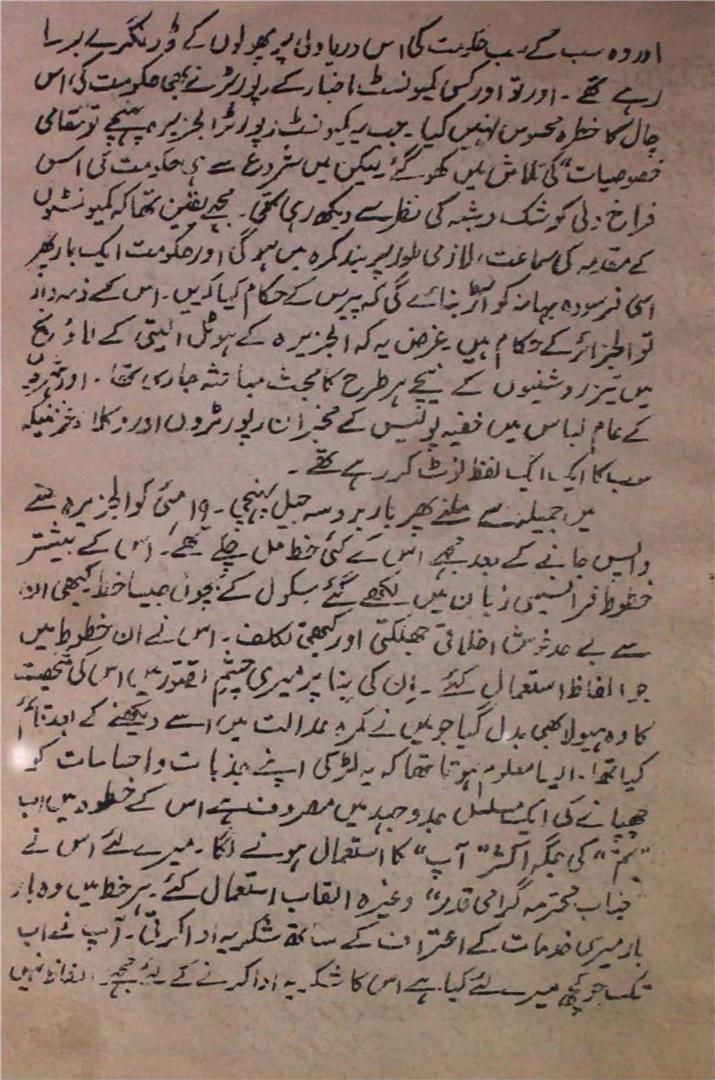 اور وہ سب کے سب حکومت کی اس دریا دلی پر پھولوں کے ڈونگرے برسا
رہے تھے۔ اور تو اور کسی کمیونسٹ اخبار کے رپورٹر نے بھی حکومت کی اس
چال کا خطرہ محسوس نہیں کیا۔ جب یہ کمیونسٹ رپورٹر الجزیرہ پہنچے تو مقامی
خصوصیات“ کی تلاش میں کھو گئے لیکن میں شروع سے ہی حکومت کی اس
فراخ دلی کو شک و شبہ کی نظر سے دیکھ رہی تھی۔ مجھے یقین تھا کہ کمیونسٹوں
کے مقدمہ کی سماعت، لازمی طور پر بند کمرہ میں ہو گی اور حکومت ایک بار پھر
اسی فرسودہ بہانہ کو آڑ بنائے گی کہ پیرس کے حکام کیا کریں۔ اس کے ذمہ دار
تو الجزائر کے حکام ہیں۔ غرض یہ کہ الجزیرہ کے ہوٹل الیتی کے لاؤنج
میں تیز روشنیوں کے نیچے ہر طرح کا بحث مباحثہ جاری تھا۔ اور
کے عام لباس میں خفیہ پولیس کے مخبر ان رپورٹروں اور وکلا غرضیکہ
سب کا ایک ایک لفظ نوٹ کر رہے تھے۔
میں جمیلہ سے ملنے پھر باربروسہ جیل پہنچی۔ ۱۹ مئی کو الجزیرہ سے
واپس جانے کے بعد مجھے اس کے کئی خط مل چکے تھے۔ اس کے بیشتر
خطوط فرانسیسی زبان میں لکھے گئے سکول کے بچوں جیسا خط کبھی ان
سے بے حد خوش اخلاقی جھلکتی اور کبھی تکلف۔ اس نے ان خطوط میں
جو الفاظ استعمال کئے۔ ان کی بنا پر میری چشم تصور میں اس کی شخصیت
کا وہ ہیولا بھی بدل گیا جو میں نے کمرہ عدالت میں اسے دیکھنے کے بعد قائم
کیا تھا۔ ایسا معلوم ہوتا تھا کہ یہ لڑکی اپنے جذبات و احساسات کو
چھپانے کی ایک مسلسل جدوجہد میں مصروف ہے اس کے خطوط میں اب
”تم“ کی جگہ اکثر ”آپ“ کا استعمال ہونے لگا۔ میرے لئے اس نے
جناب محترمہ گرامی قدر“ وغیرہ القاب استعمال کئے۔ ہر خط میں وہ بار
بار میری خدمات کے اعتراف کے ساتھ شکریہ ادا کرتی۔ آپ نے اب
تک جو کچھ میرے لئے کیا ہے اس کا شکریہ ادا کرنے کے لئے مجھے الفاظ نہیں